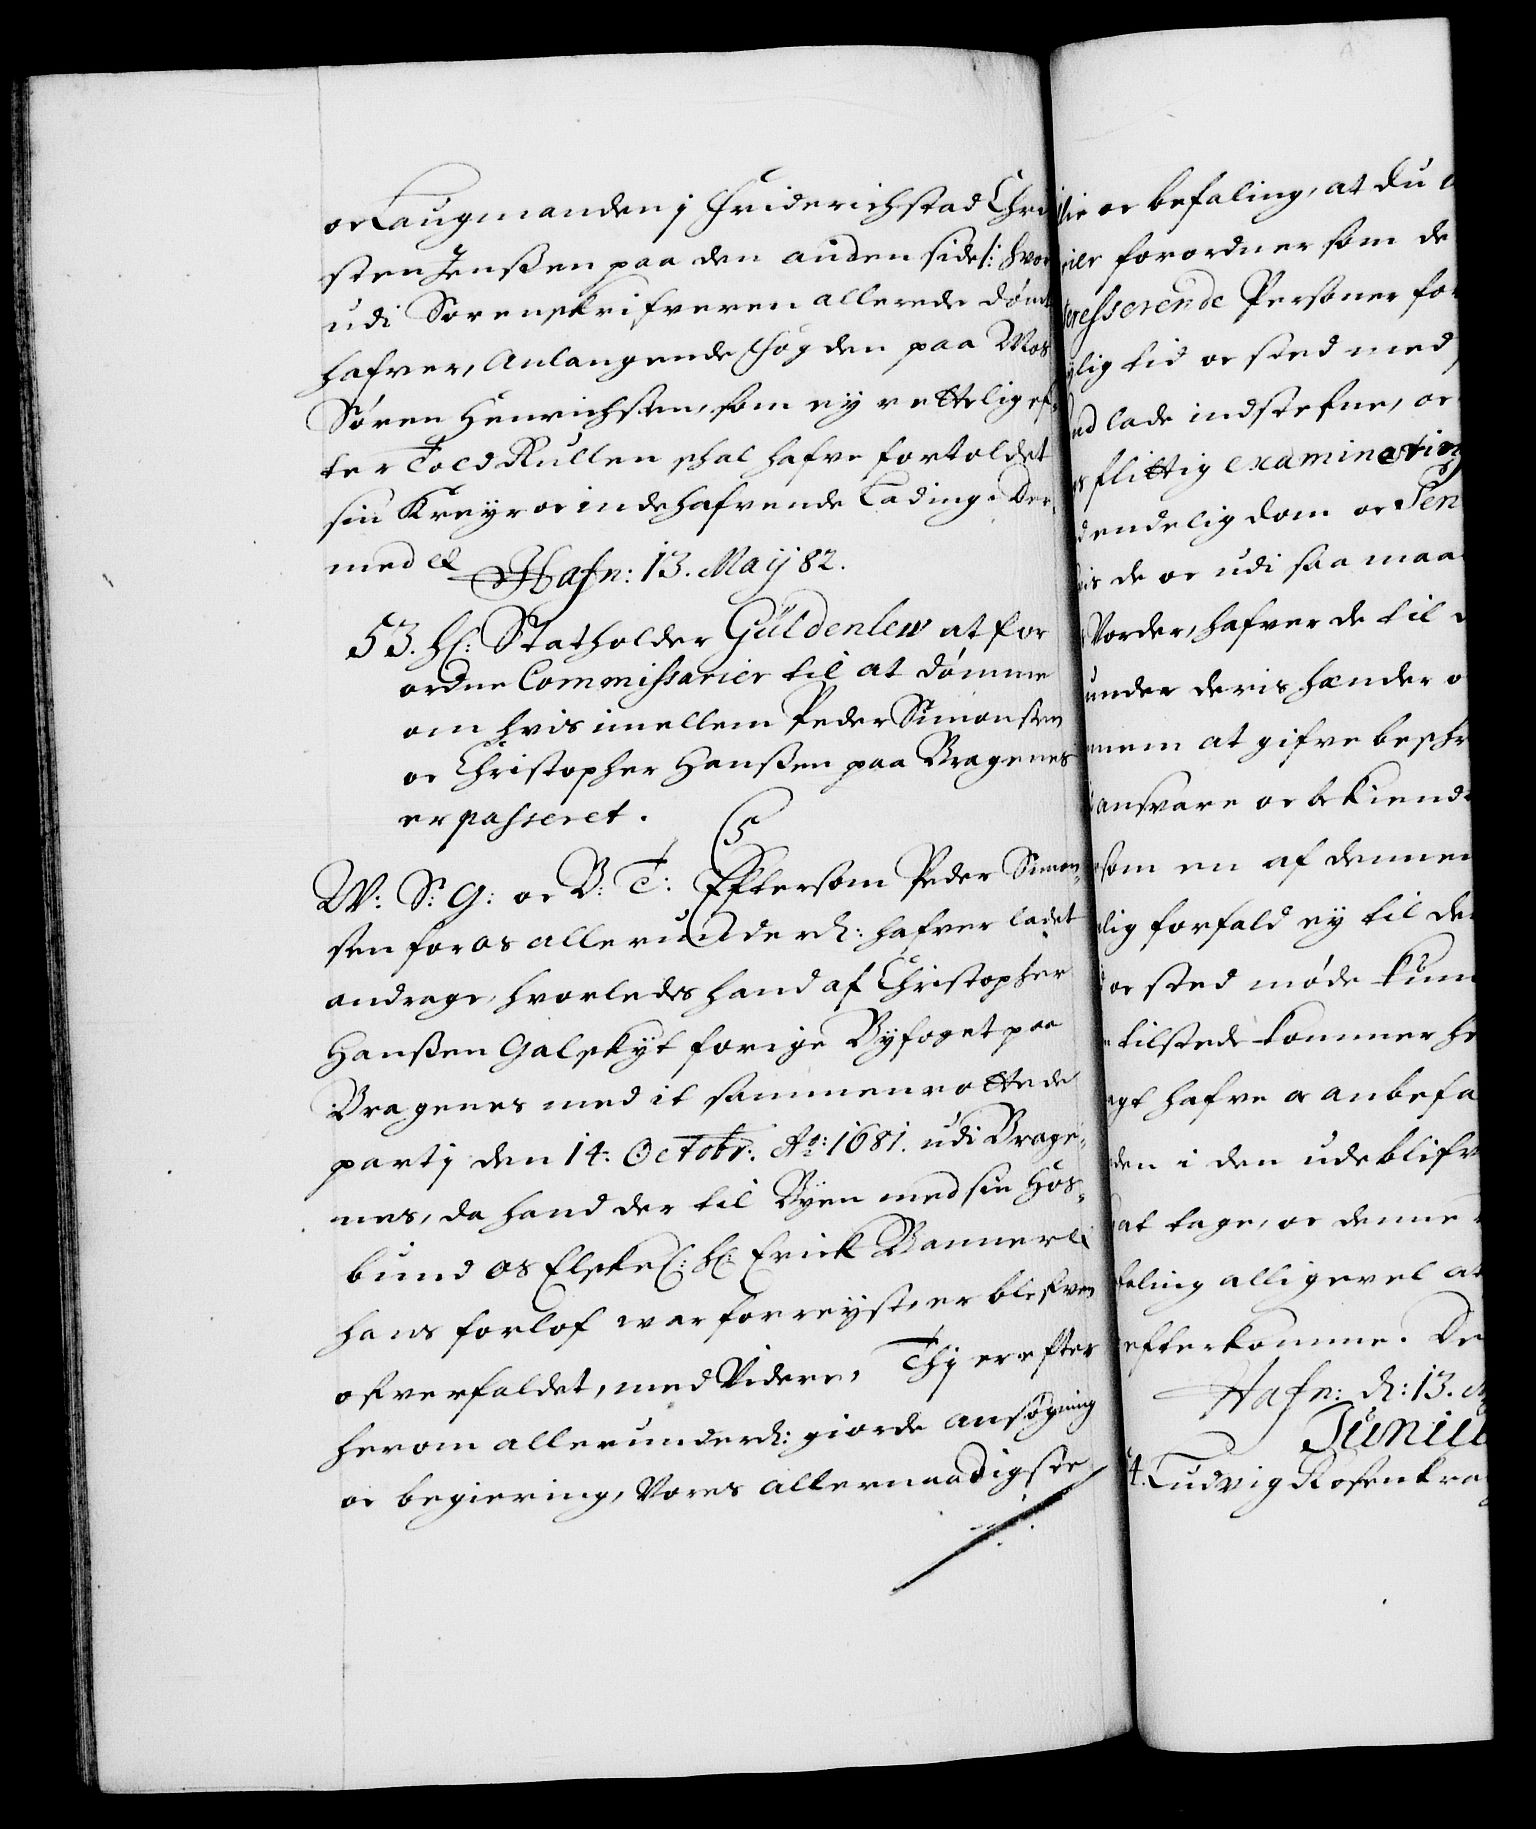 oc Laugmanden j Friderichstad Chri
sten Jenßen paa den anden side /: hvor
udi Sorenskrifveren allerede dømt
hafver, Anlangende Fogden paa Mos
Søren Henrichsen, som ey rettelig ef¬
ter Told Rullen skal hafve fortoldet
sin Kreyer oc indehafvende Lading. Der¬
med etc
Hafn: 13. Maij 82.
53. Hr: Statholder Güldenlew at for
ordne Commissarier til at dømme
om hvis imellem Peder Simonsen
oc Christopher Hanßen paa Bragenes
er passeret.
C5
W: S: G: oc B: T: Eftersom Peder Simon¬
sen for os allerunderd: hafver ladet
andrage, hvorledes hand af Christopher
Hanßen Galskyt forige Byfoget paa
Bragenes med it sammenrottede
partj den 14. Octobr: Ao: 1681. udi Brage¬
nes, da hand der til Byen med sin Hos¬
bund os Elskel: Hr: Erick Banner
hans forlof war forreyst, er blefven
ofverfaldet, med Videre, Thj er efter
herom allerunderd: giorde ansøgning
oc begiering, Vores allernaadigste
lie oc befaling, at du
rier forordner som de
teresserende Personer for
ylig tid oc sted med
nd lade indstefne, oc
s flittig examinering
dendelig dom oc Sen
is de oc udi saa maa
Vorder, hafver de til
under deris hænder o
nem at gifve beskr
ansvare oc bekiendt
som en af dennem
lig forfald ey til de
oc sted møde kun
tilstede kommer he
agt hafve oc anbefa
den i den udeblifv
at tage, oc denne
faling alligevel at
efterkomme. De
Hafn: d: 13.
Junii
4. Ludvig Rosenkra